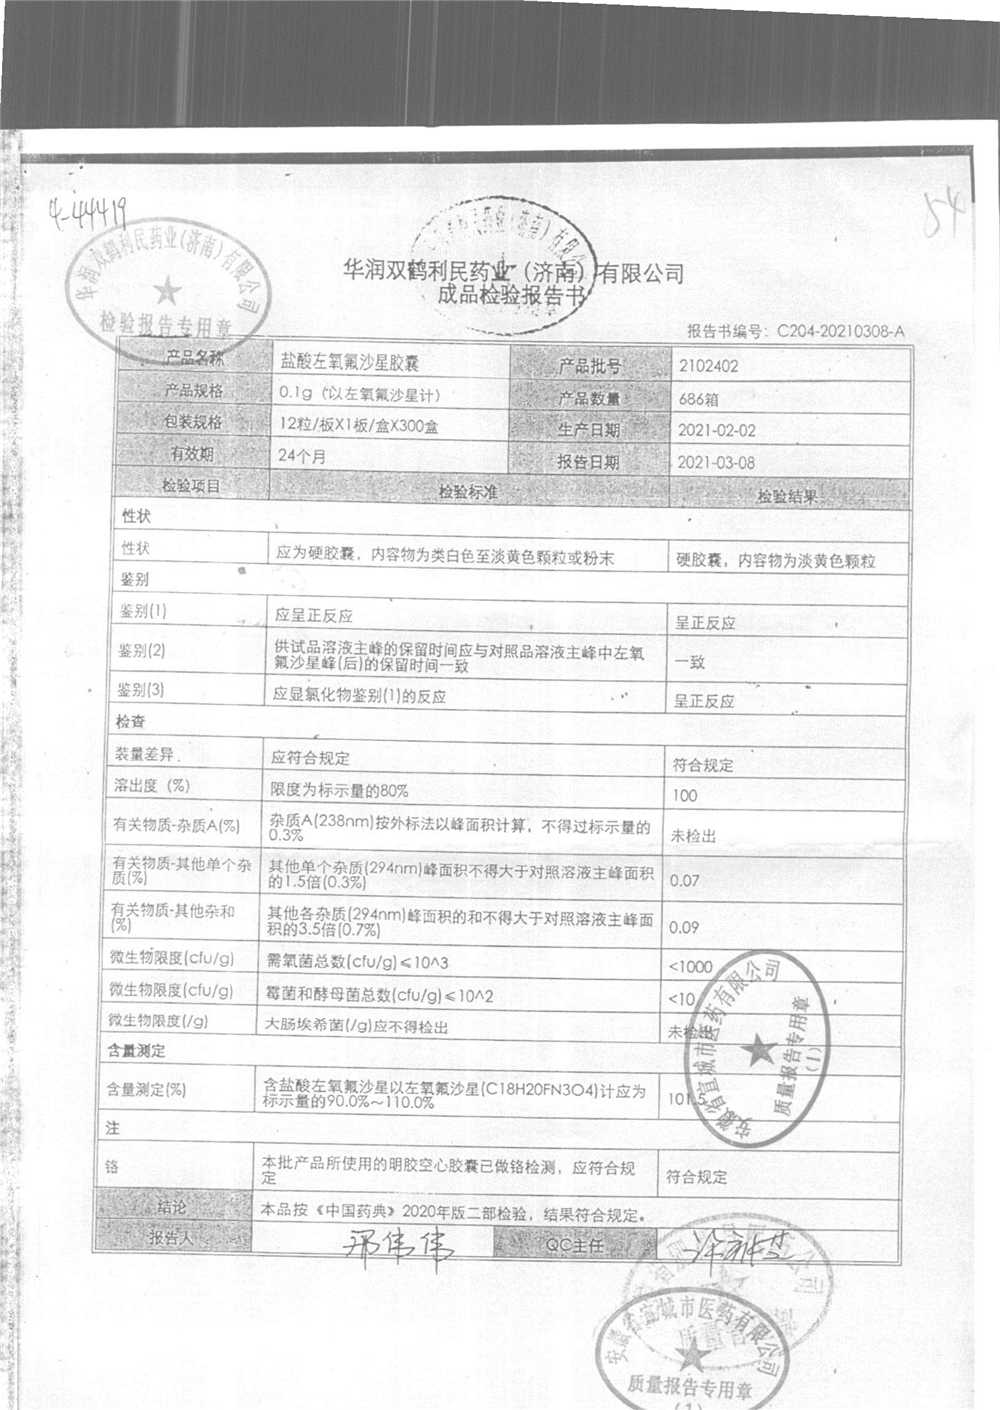 4-44419
54
华润双鹤利民药业(济南)有限公司
检验报告专用章
华润双鹤利民药业（济南）有限公司
成品检验报告书
报告书编号：C204-20210308-A
产品名称 盐酸左氧氟沙星胶囊 产品批号 2102402
产品规格 0.1g（以左氧氟沙星计） 产品数量 686箱
包装规格 12粒/板X1板/盒X300盒 生产日期 2021-02-02
有效期 24个月 报告日期 2021-03-08
检验项目 检验标准 检验结果
性状
性状 应为硬胶囊，内容物为类白色至淡黄色颗粒或粉末 硬胶囊，内容物为淡黄色颗粒
鉴别
鉴别(1) 应呈正反应 呈正反应
鉴别(2) 供试品溶液主峰的保留时间应与对照品溶液主峰中左氧
氟沙星峰(后)的保留时间一致 一致
鉴别(3) 应显氯化物鉴别(1)的反应 呈正反应
检查
装量差异 应符合规定 符合规定
溶出度（%） 限度为标示量的80% 100
有关物质-杂质A(%) 杂质A(238nm)按外标法以峰面积计算，不得过标示量的
0.3% 未检出
有关物质-其他单个杂 其他单个杂质(294nm)峰面积不得大于对照溶液主峰面积
质(%) 的1.5倍(0.3%) 0.07
有关物质-其他杂和 其他各杂质(294nm)峰面积的和不得大于对照溶液主峰面
(%) 积的3.5倍(0.7%) 0.09
微生物限度(cfu/g) 需氧菌总数(cfu/g)≤10^3 <1000
微生物限度(cfu/g) 霉菌和酵母菌总数(cfu/g)≤10^2 <10
微生物限度(/g) 大肠埃希菌(/g)应不得检出 未检出
含量测定
含量测定(%) 含盐酸左氧氟沙星以左氧氟沙星(C18H20FN3O4)计应为
标示量的90.0%～110.0% 101.5
注
铬 本批产品所使用的明胶空心胶囊已做铬检测，应符合规
定 符合规定
结论 本品按《中国药典》2020年版二部检验，结果符合规定。
报告人 邢伟伟 QC主任
安徽省宣城市医药有限公司
质量报告专用章
(1)
安徽省宣城市医药有限公司
质量报告专用章
(1)